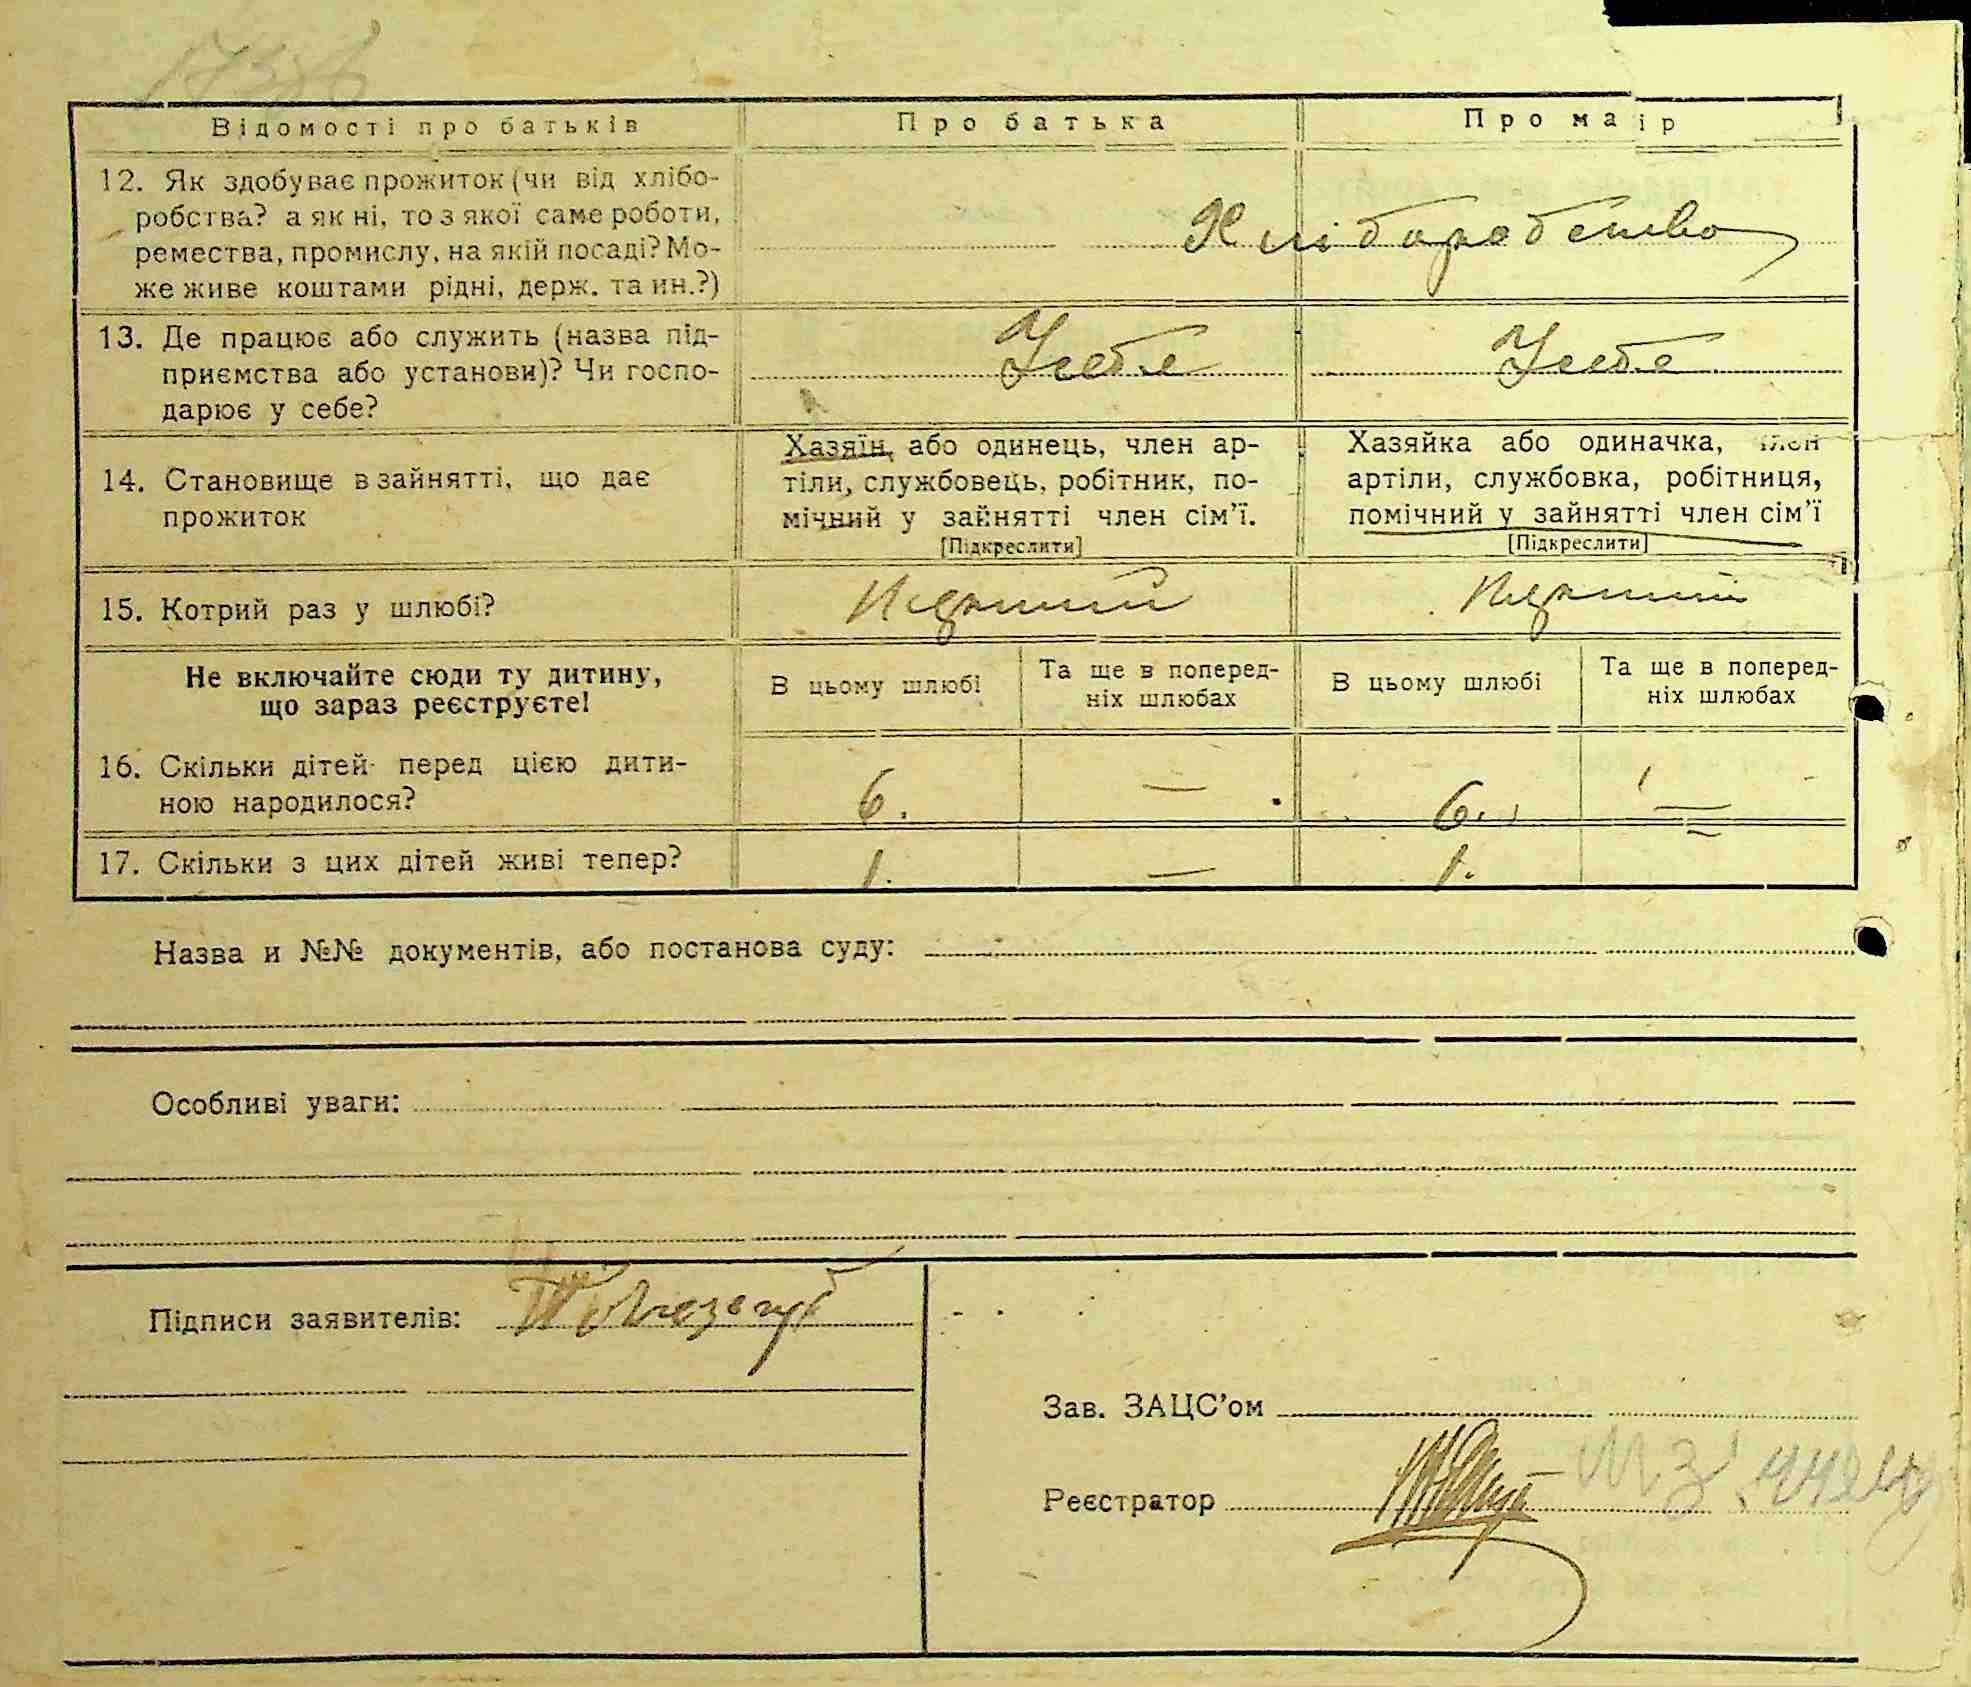 Відомості про батьків
Про батька
Про маір
12. Як здобуває прожиток (чи від хлібо-
робства? а як ні, то з якої саме роботи,
ремества, промислу, на якій посаді? Мо-
же живе коштами рідні, держ. та ин.?)
Хліборобство
13. Де працює або служить (назва під-
приємства або установи)? Чи госпо-
дарює у себе?
Усебе
Усебе
14. Становище в зайнятті, що дає
прожиток
Хазяїн, або одинець, член ар-
тіли, службовець, робітник, по-
мічний у зайнятті член сім’ї.
[Підкреслити]
Хазяйка або одиначка, член
артіли, службовка, робітниця,
помічний у зайнятті член сім’ї
[Підкреслити]
15. Котрий раз у шлюбі?
Перший
Перший
Не включайте сюди ту дитину,
що зараз реєструєте!
В цьому шлюбі
Та ще в поперед-
ніх шлюбах
В цьому шлюбі
Та ще в поперед-
ніх шлюбах
16. Скільки дітей перед цією дити-
ною народилося?
6. — 6. —
17. Скільки з цих дітей живі тепер?
1. — 1. —
Назва и №№ документів, або постанова суду:
Особливі уваги:
Підписи заявителів:
Зав. ЗАЦС’ом
Реєстратор